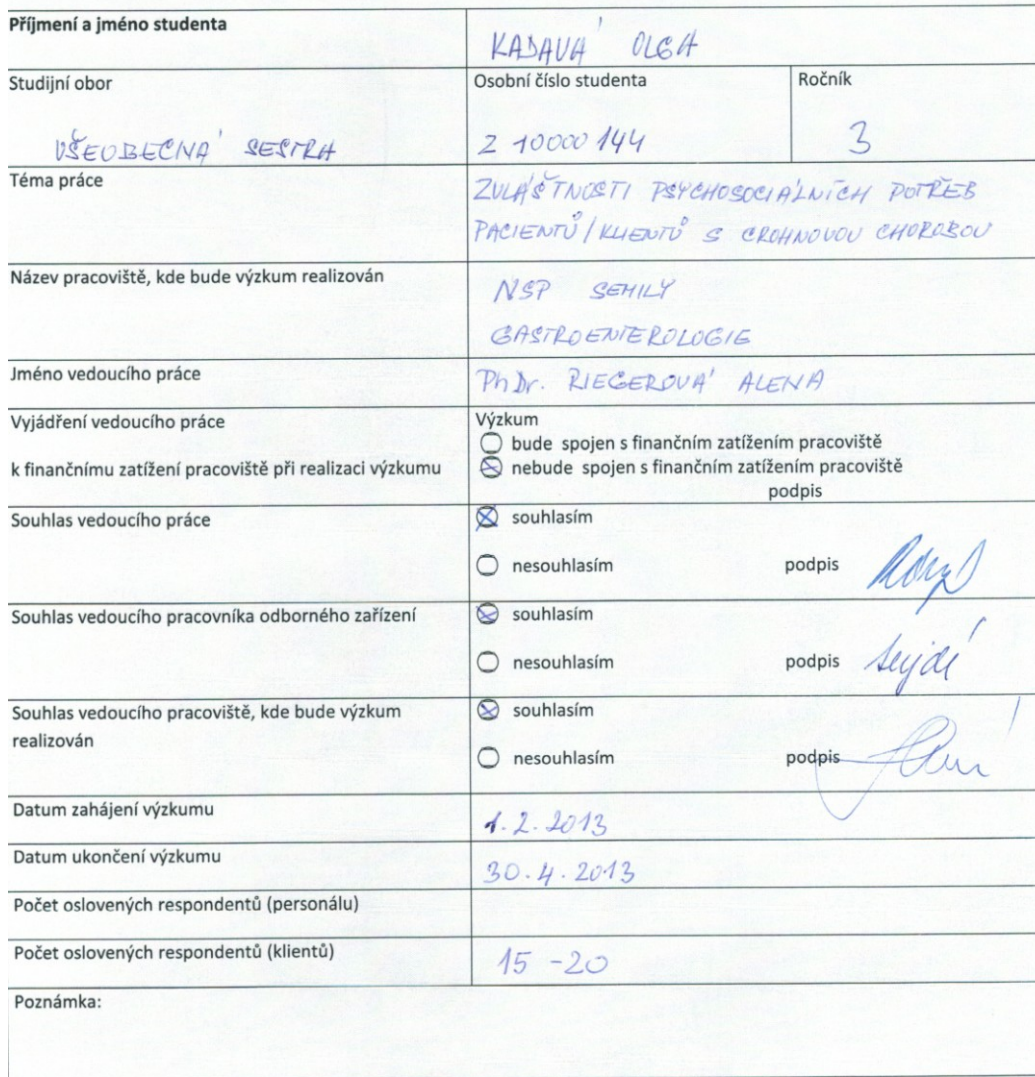 Příjmení a jméno studenta
KADAVÁ OLGA
Studijní obor
Osobní číslo studenta
Ročník
VŠEOBECNÁ SESTRA
Z 10000 144
3
Téma práce
ZVLÁŠTNOSTI PSYCHOSOCIÁLNÍCH POTŘEB
PACIENTŮ/KLIENTŮ S CROHNOVOU CHOROBOU
Název pracoviště, kde bude výzkum realizován
NSP SEMILY
GASTROENTEROLOGIE
Jméno vedoucího práce
PhDr. RIEGEROVÁ ALENA
Vyjádření vedoucího práce
k finančnímu zatížení pracoviště při realizaci výzkumu
Výzkum
bude spojen s finančním zatížením pracoviště
nebude spojen s finančním zatížením pracoviště
podpis
Souhlas vedoucího práce
souhlasím
nesouhlasím
podpis
Souhlas vedoucího pracovníka odborného zařízení
souhlasím
nesouhlasím
podpis
Souhlas vedoucího pracoviště, kde bude výzkum
realizován
souhlasím
nesouhlasím
podpis
Datum zahájení výzkumu
1.2.2013
Datum ukončení výzkumu
30.4.2013
Počet oslovených respondentů (personálu)
Počet oslovených respondentů (klientů)
15 -20
Poznámka: